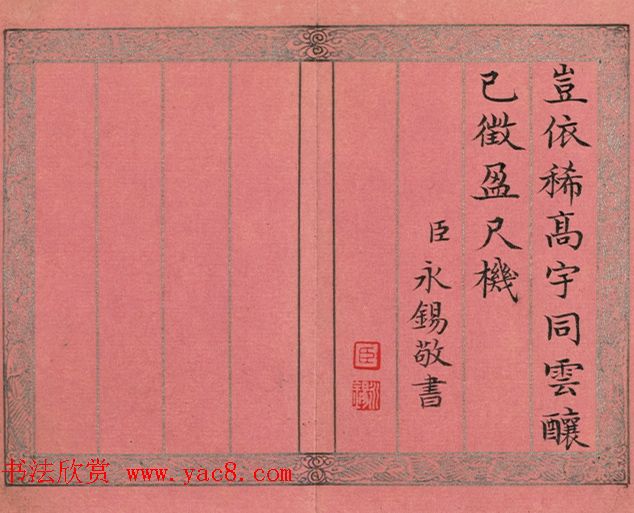 豈依稀高宇同雲釀
已徵盈尺機
臣永錫敬書
臣
永錫
书法欣赏 www.yac8.com